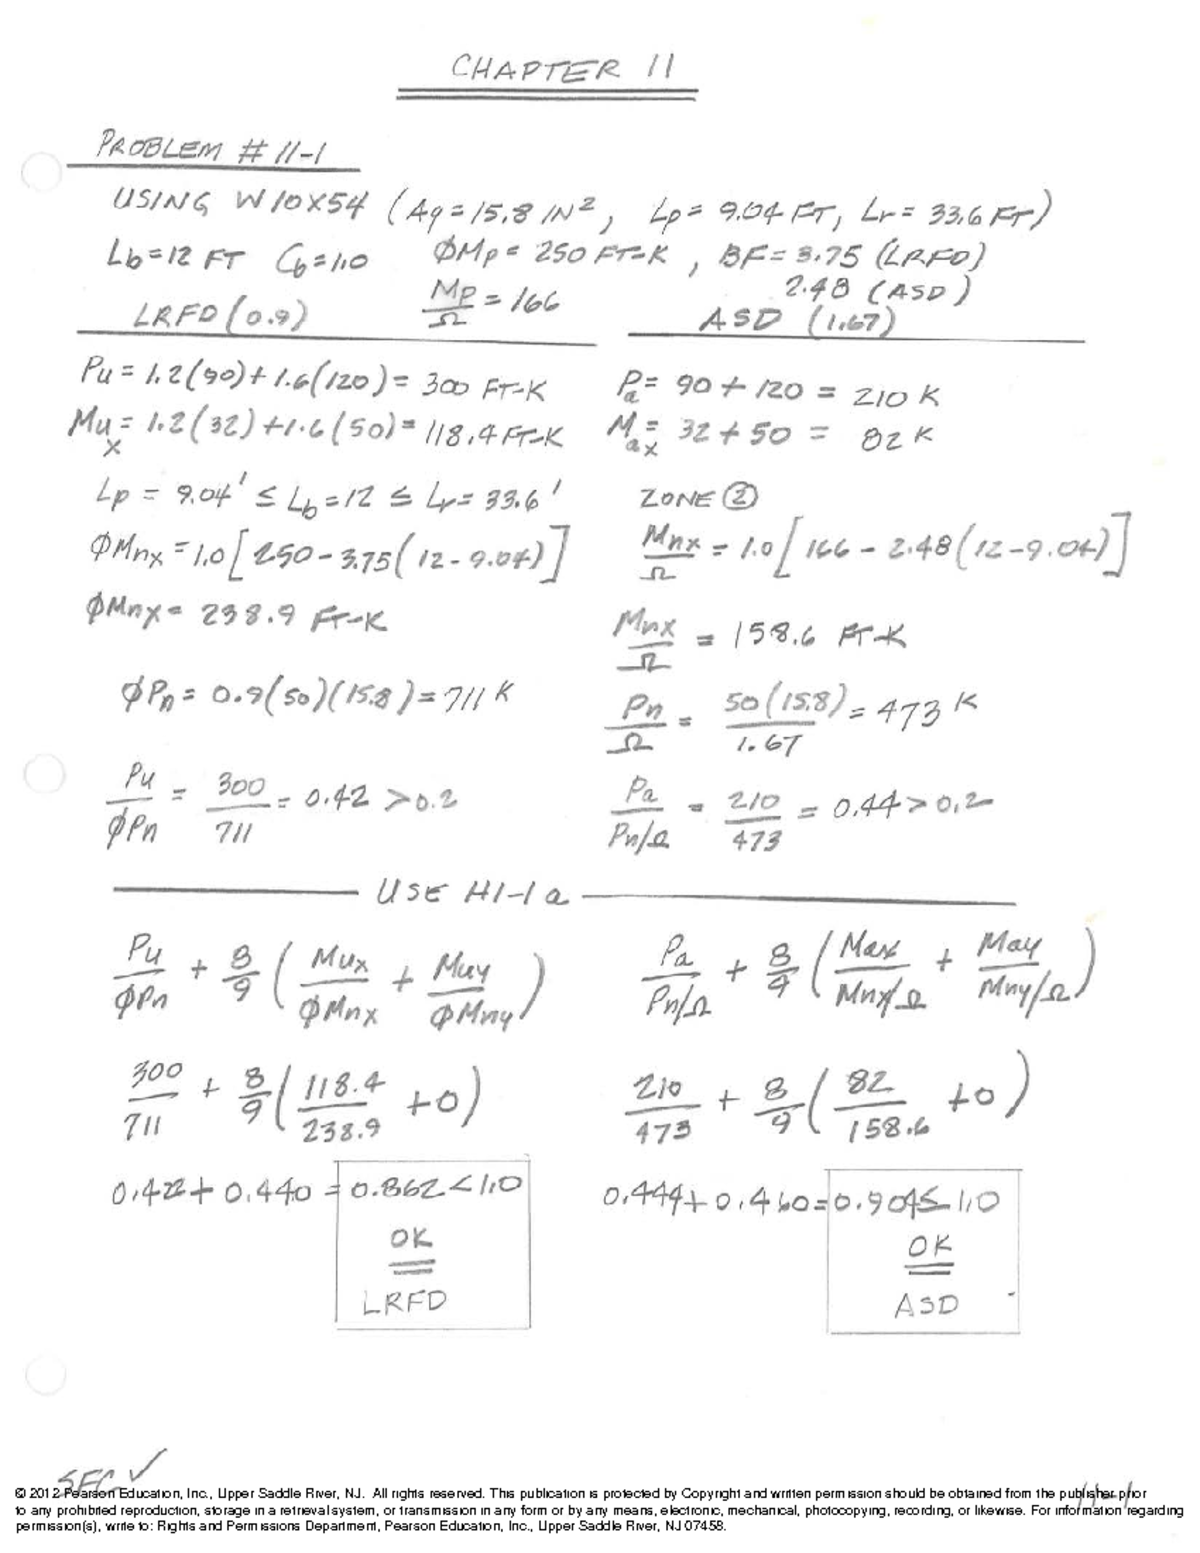 CHAPTER 11
PROBLEM # 11-1
USING W10X54 (Ag = 15.8 IN², Lp = 9.04 FT, Lr = 33.6 FT)
Lb = 12 FT Cb = 1.0 ØMp = 250 FT-K, BF = 3.75 (LRFD)
Mp/Ω = 166 2.48 (ASD)
LRFD (0.9) ASD (1.67)
Pu = 1.2(90) + 1.6(120) = 300 FT-K
Mux = 1.2(32) + 1.6(50) = 118.4 FT-K
Lp = 9.04' ≤ Lb = 12 ≤ Lr = 33.6'
ØMnx = 1.0[250 - 3.75(12 - 9.04)]
ØMnx = 238.9 FT-K
ØPn = 0.9(50)(15.8) = 711 K
Pu/ØPn = 300/711 = 0.42 > 0.2
Pa = 90 + 120 = 210 K
Max = 32 + 50 = 82 K
ZONE ②
Mnx/Ω = 1.0[166 - 2.48(12 - 9.04)]
Mnx/Ω = 158.6 FT-K
Pn/Ω = 50(15.8)/1.67 = 473 K
Pa/Pn/Ω = 210/473 = 0.44 > 0.2
USE H1-1a
Pu/ØPn + 8/9 (Mux/ØMnx + Muy/ØMny)
300/711 + 8/9 (118.4/238.9 + 0)
0.422 + 0.440 = 0.862 < 1.0
OK
LRFD
Pa/Pn/Ω + 8/9 (Max/Mnx/Ω + May/Mny/Ω)
210/473 + 8/9 (82/158.6 + 0)
0.444 + 0.460 = 0.904 ≤ 1.0
OK
ASD
SFC ✓
11-1
© 2012 Pearson Education, Inc., Upper Saddle River, NJ. All rights reserved. This publication is protected by Copyright and written permission should be obtained from the publisher prior
to any prohibited reproduction, storage in a retrieval system, or transmission in any form or by any means, electronic, mechanical, photocopying, recording, or likewise. For information regarding
permission(s), write to: Rights and Permissions Department, Pearson Education, Inc., Upper Saddle River, NJ 07458.